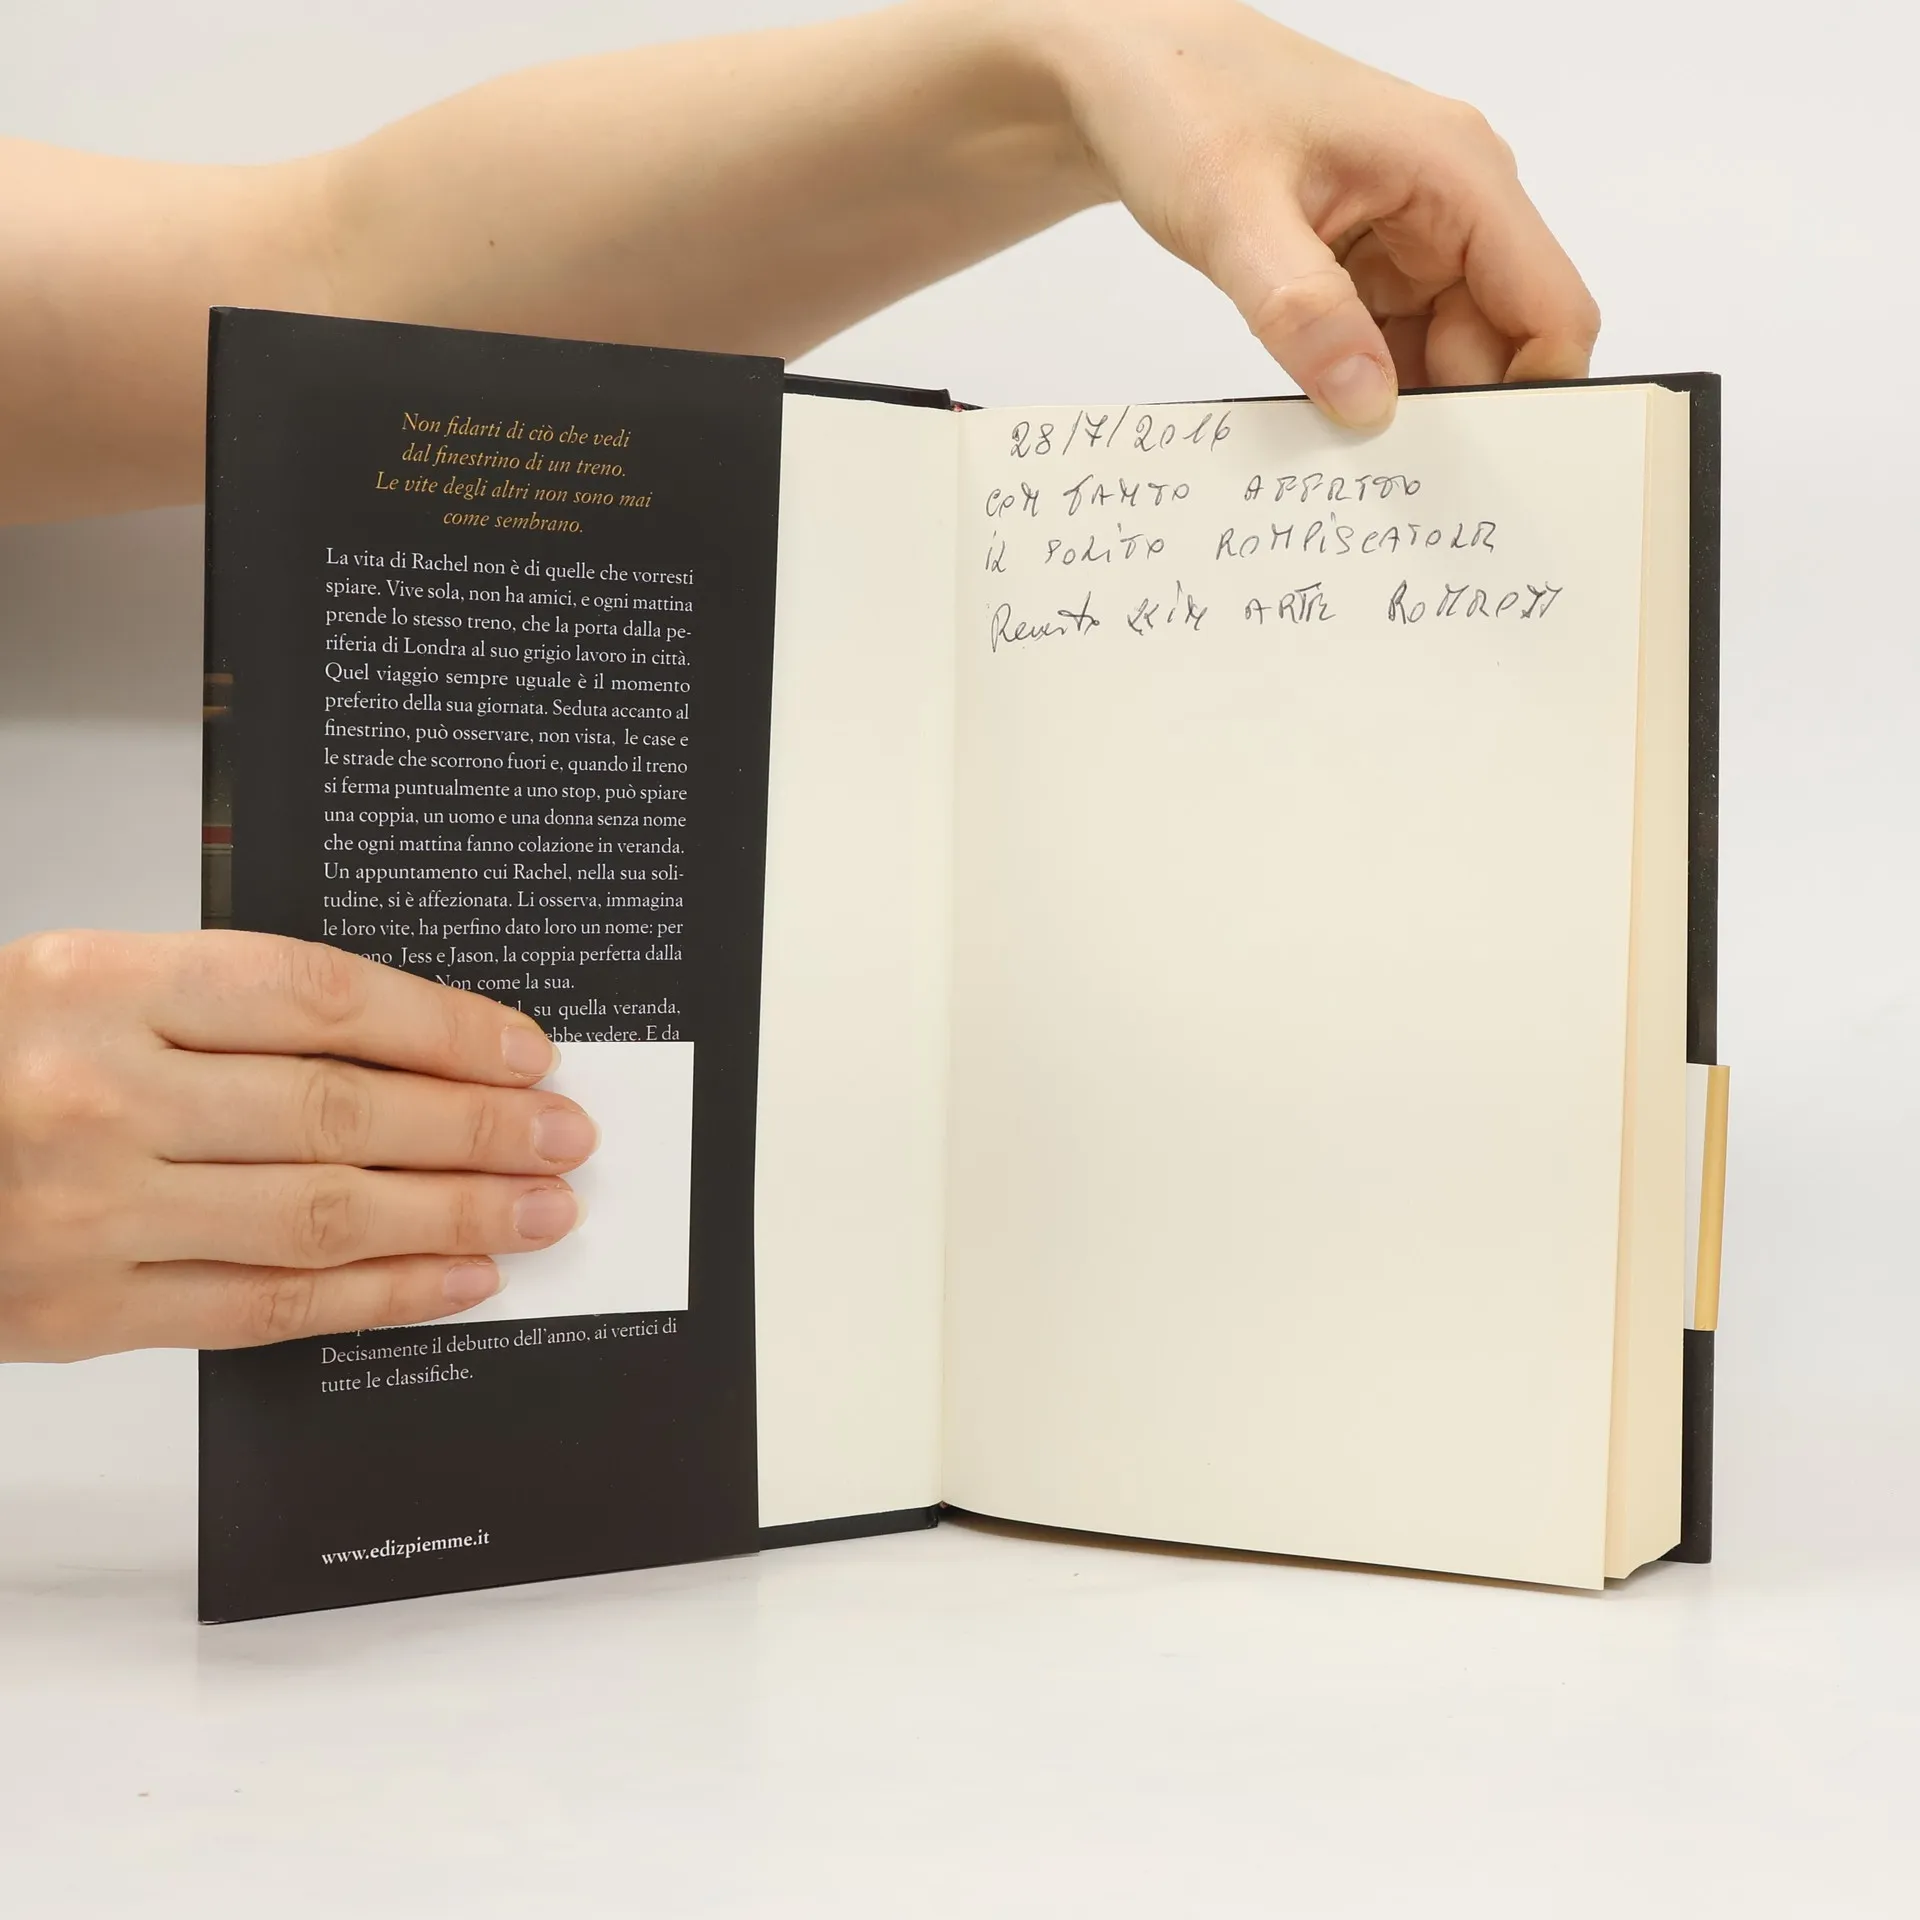 Non fidarti di ciò che vedi
dal finestrino di un treno.
Le vite degli altri non sono mai
come sembrano.
La vita di Rachel non è di quelle che vorresti
spiare. Vive sola, non ha amici, e ogni mattina
prende lo stesso treno, che la porta dalla pe-
riferia di Londra al suo grigio lavoro in città.
Quel viaggio sempre uguale è il momento
preferito della sua giornata. Seduta accanto al
finestrino, può osservare, non vista, le case e
le strade che scorrono fuori e, quando il treno
si ferma puntualmente a uno stop, può spiare
una coppia, un uomo e una donna senza nome
che ogni mattina fanno colazione in veranda.
Un appuntamento cui Rachel, nella sua soli-
tudine, si è affezionata. Li osserva, immagina
le loro vite, ha perfino dato loro un nome: per
Jess e Jason, la coppia perfetta dalla
Non come la sua.
su quella veranda,
vedere. E da
Decisamente il debutto dell'anno, ai vertici di
tutte le classifiche.
www.edizpiemme.it
28/7/2016
CON TANTO AFFETTO
il SOLiTO ROMPiSCATOLE
ARTE